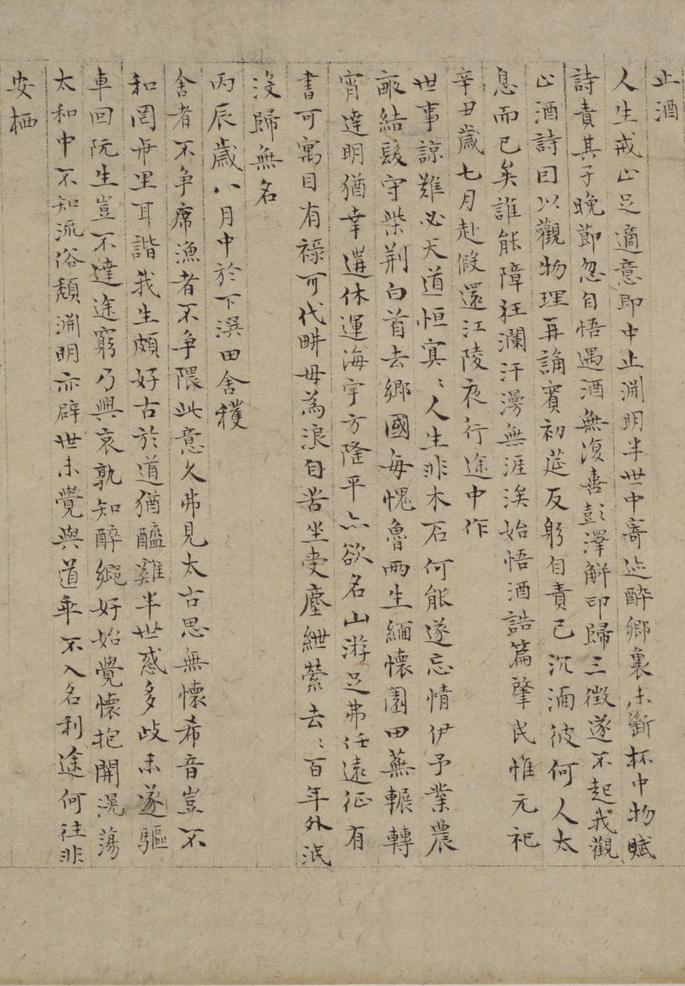 止酒
人生戒止足適意即中止淵明半世中寄迹醉鄉裏未斷杯中物賦
詩責其子晚節忽自悟遇酒無復喜彭澤解印歸三徵遂不起我觀
止酒詩因以觀物理再誦賓初莚反躬自責己沉湎彼何人太
息而已矣誰能障狂瀾汗漫無涯涘始悟酒誥篇肇民惟元祀
辛丑歲七月赴假還江陵夜行途中作
世事諒難必天道恒寞〻人生非木石何能遂忘情伊予業農
畝結髮守柴荆白首去鄉國每愧魯兩生緬懷園田蕪輾轉
宵達明猶幸遘休運海宇方隆平亦欲名山游足弗任遠征有
書可寓目有禄可代畊毋為浪自苦坐受塵紲縈去〻百年外泯
沒歸無名
丙辰歲八月中於下潠田舍穫
舍者不争席漁者不争隈此意久弗見太古思無懷希音豈不
和罔弗里耳諧我生頗好古於道猶醯雞半世惑多歧未遂驅
車回阮生豈不達途窮乃興哀孰知醉鄉好始覺懷抱開滉蕩
太和中不知流俗頹淵明亦辟世未覺與道乖不入名利途何往非
安栖